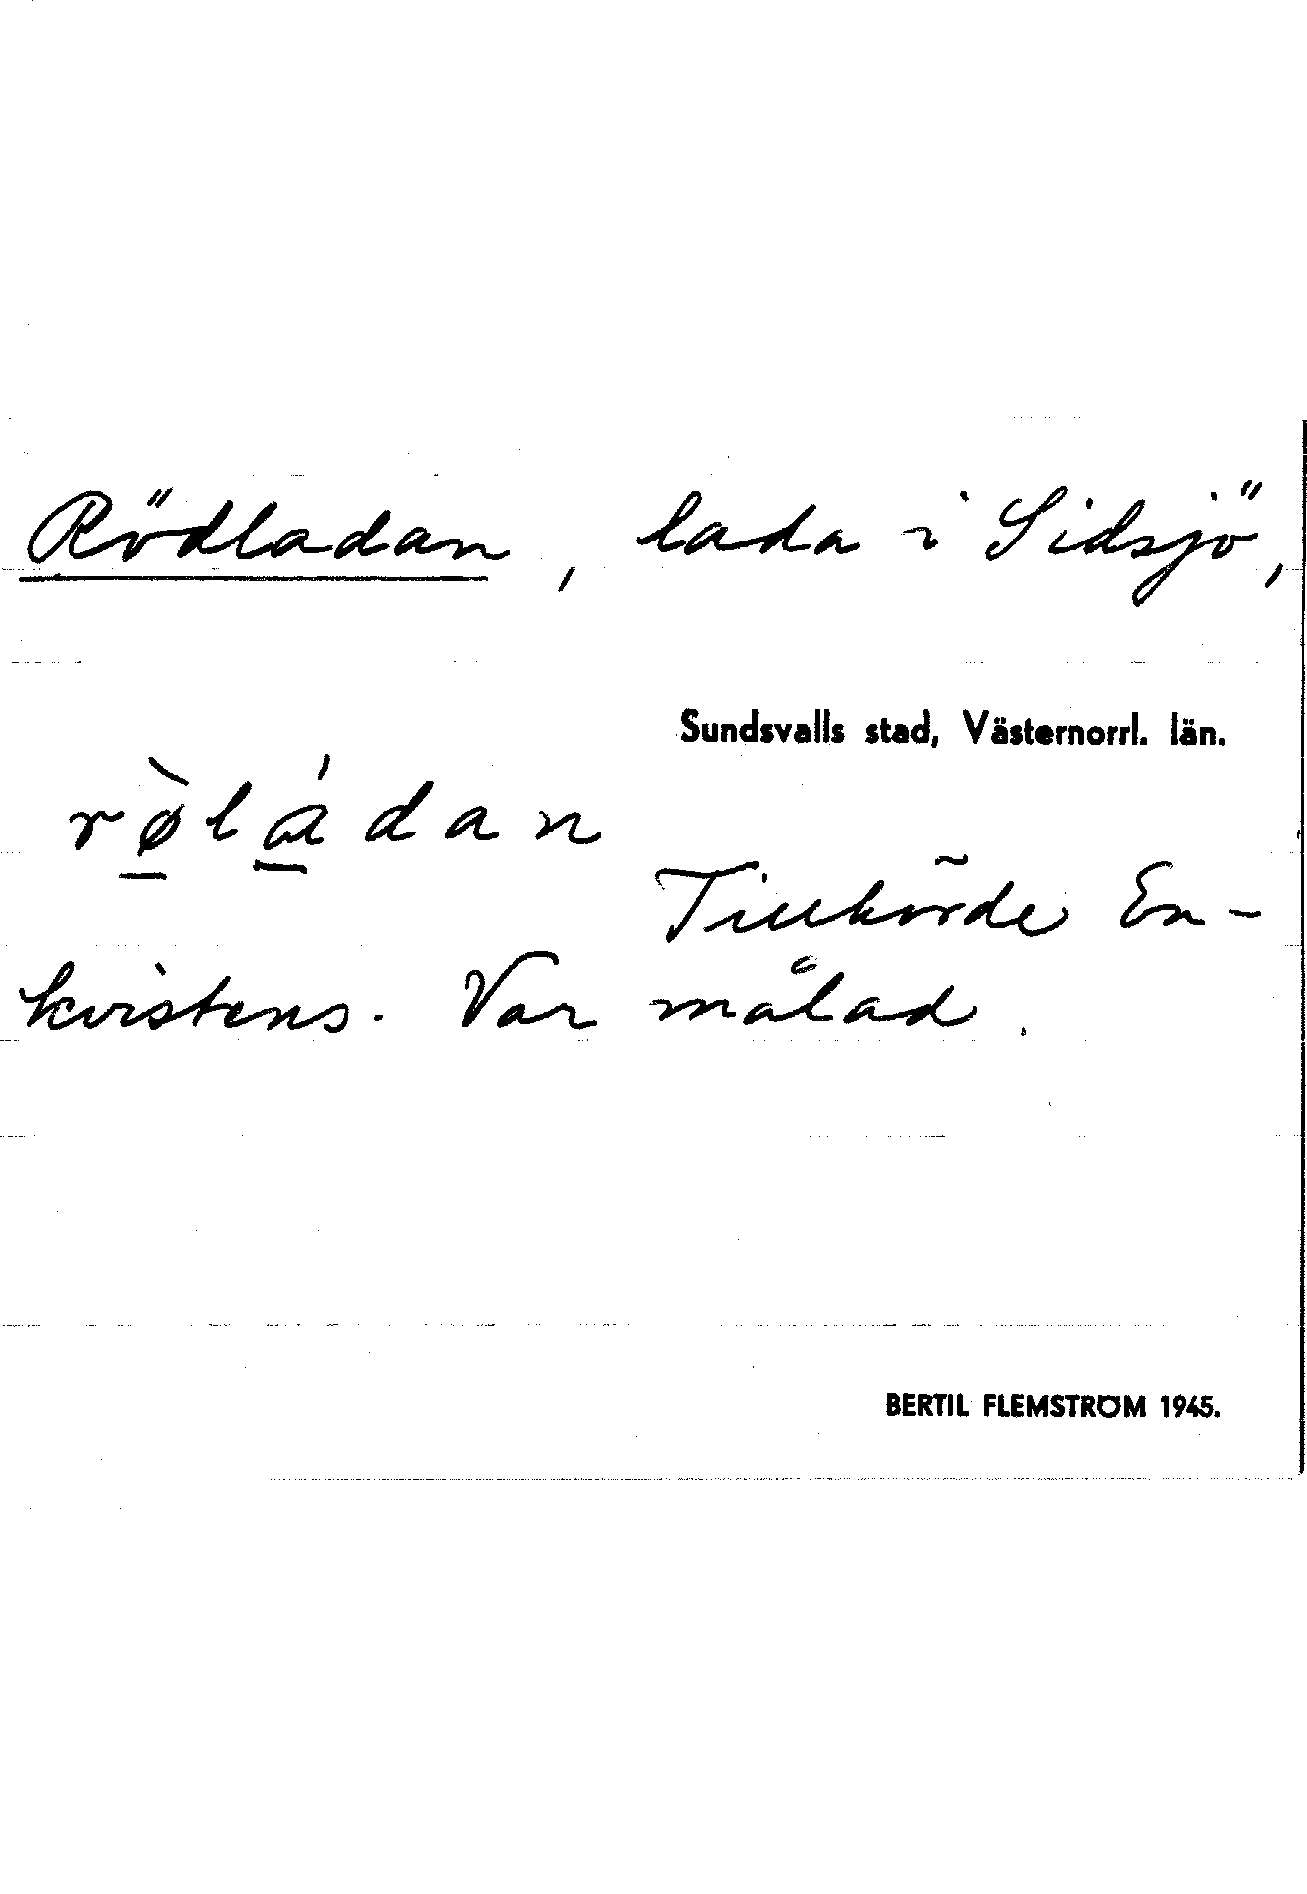 Rödladan, lada i Sidsjö,
Sundsvalls stad, Västernorrl. län.
rø̀ládan
Tillhörde En-
kvistens. Var målad.
BERTIL FLEMSTRÖM 1945.